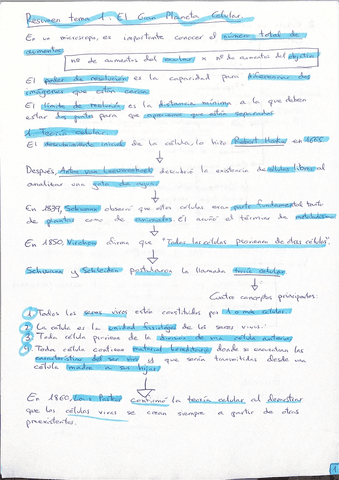 Resumen tema 1. El Gran Planeta Celular.
En un microscopio, es importante conocer el número total de
aumentos:
nº de aumentos del ocular x nº de aumentos del objetivo
El poder de resolución es la capacidad para diferenciar dos
imágenes que están cerca.
El límite de resolución es la distancia mínima a la que deben
estar dos puntos para que aparezcan que están separados
1. Teoría celular.
El descubrimiento inicial de la célula, lo hizo Robert Hooke en 1665
Después, Anton van Leeuwenhoek descubrió la existencia de células libres al
analizar una gota de agua.
En 1839, Schwann observó que estas células eran parte fundamental tanto
de plantas como de animales. Él acuñó el término de metabolismo.
En 1850, Virchow afirma que "Todas las células provienen de otras células".
Schwann y Schleiden postularon la llamada teoría celular
Cuatro conceptos principales:
1 Todos los seres vivos están constituidos por 1 o más células.
2 La célula es la unidad fisiológica de los seres vivos.
3 Toda célula proviene de la división de una célula anterior
4 Toda célula contiene material hereditario donde se encuentran las
características del ser vivo y que serán transmitidas desde una
célula madre a sus hijas.
En 1860, Louis Pasteur confirmó la teoría celular al demostrar
que las células vivas se crean siempre a partir de otras
preexistentes.
1